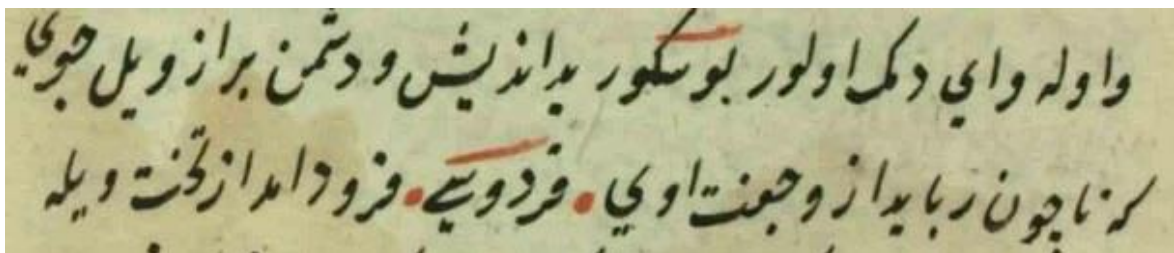 واوله واي دمك اولور بوشكور بدانديش و دشمن براز ويل جوي
كه ناچون ربايد از و جفت اوي • فردوسي • فرود امد از تخت ويله